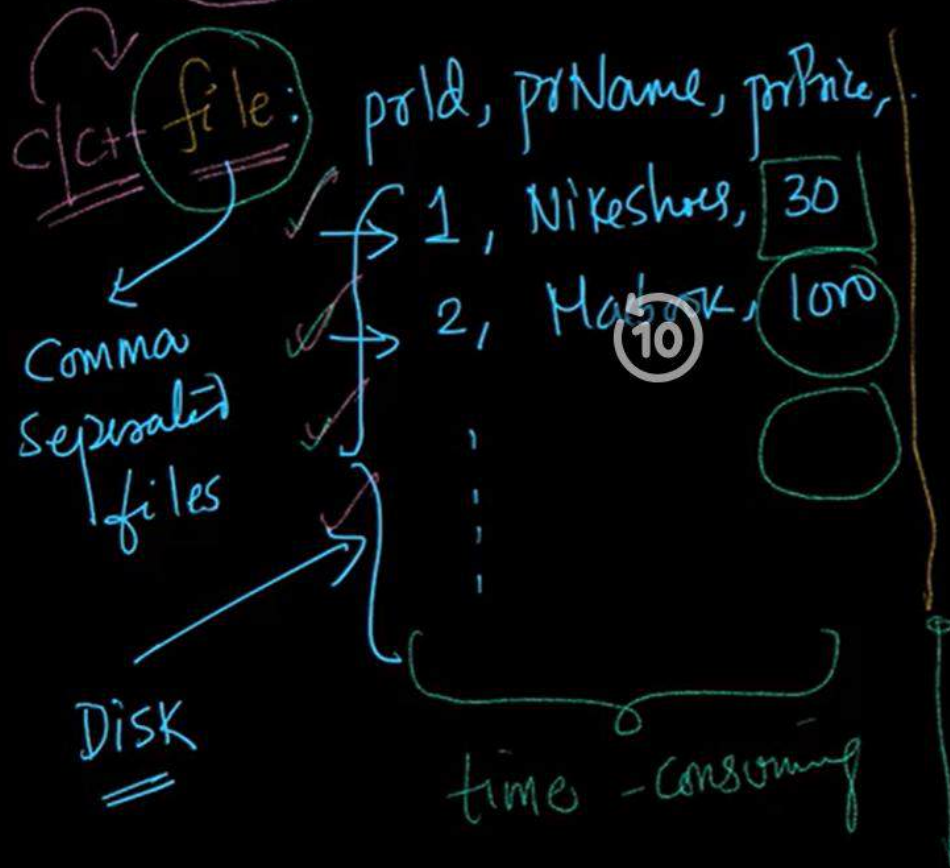 c/c++ file: prId, prName, prPrice, .
1, Nikeshoes, 30
2, Macbook, 1000
10
Comma
Seperated
files
DISK
time - consuming